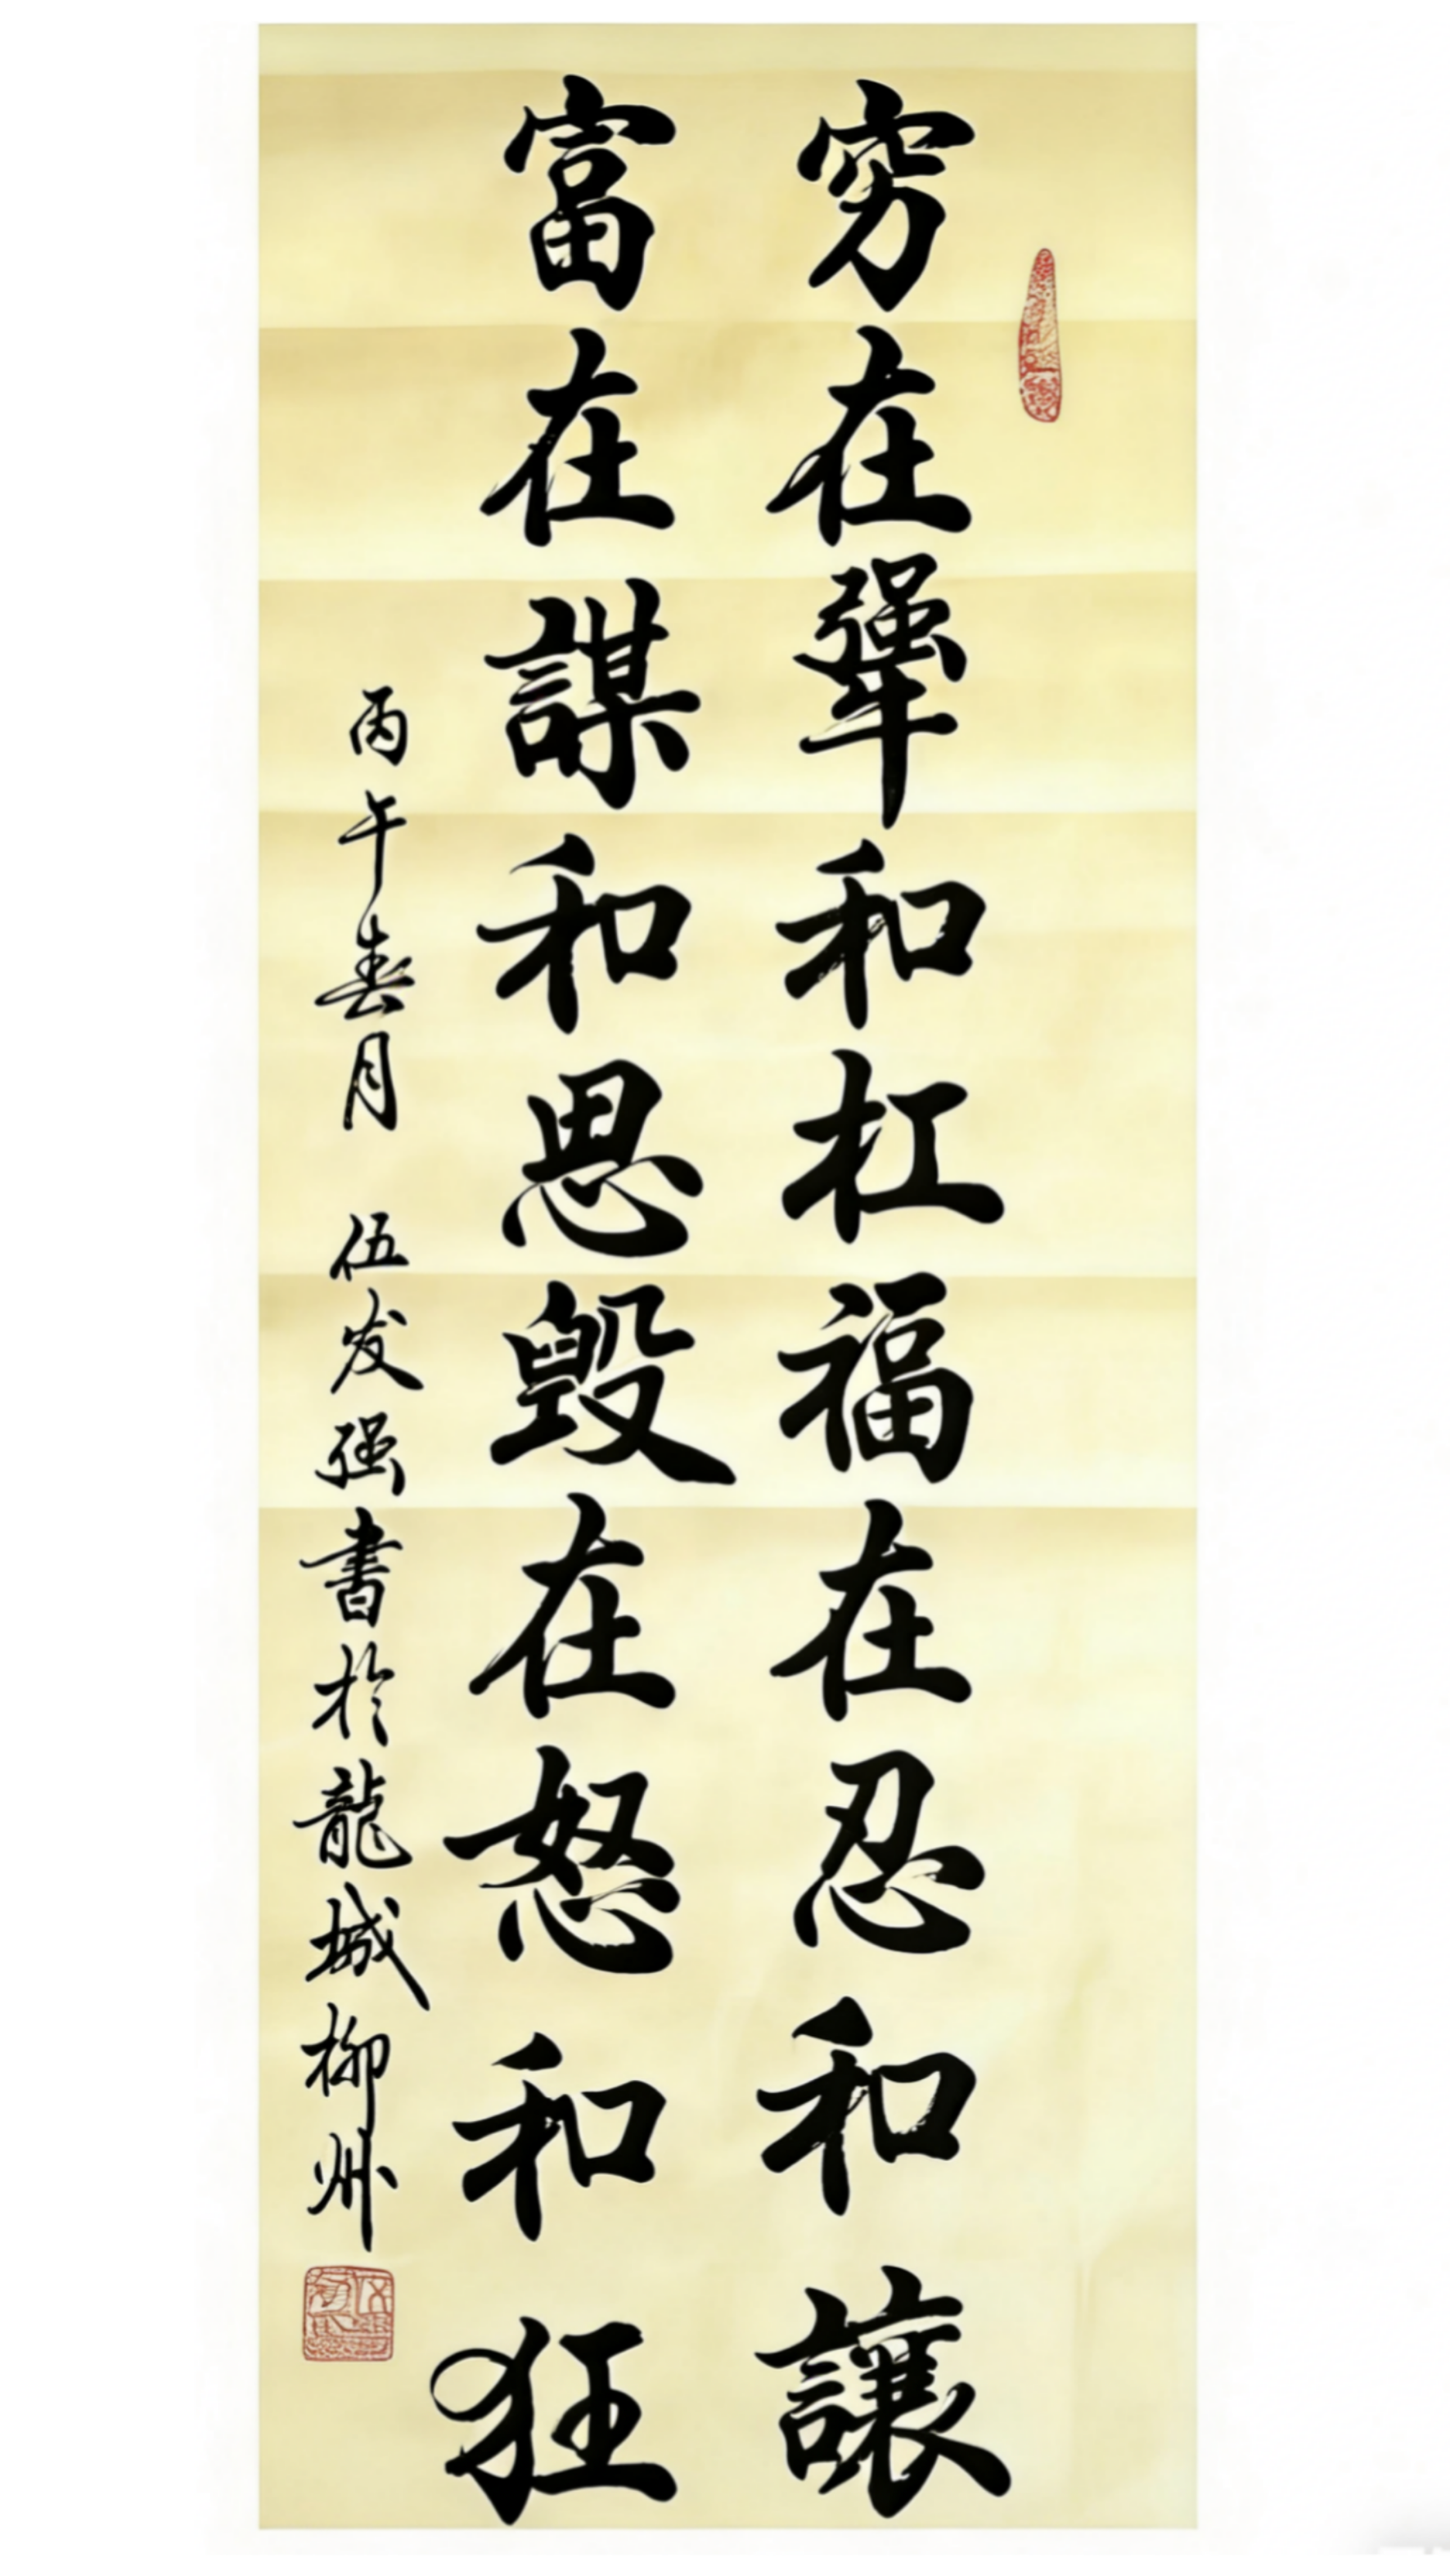 穷在犟和杠福在忍和讓
富在謀和思毀在怒和狂
丙午春月 伍发强書於龍城柳州